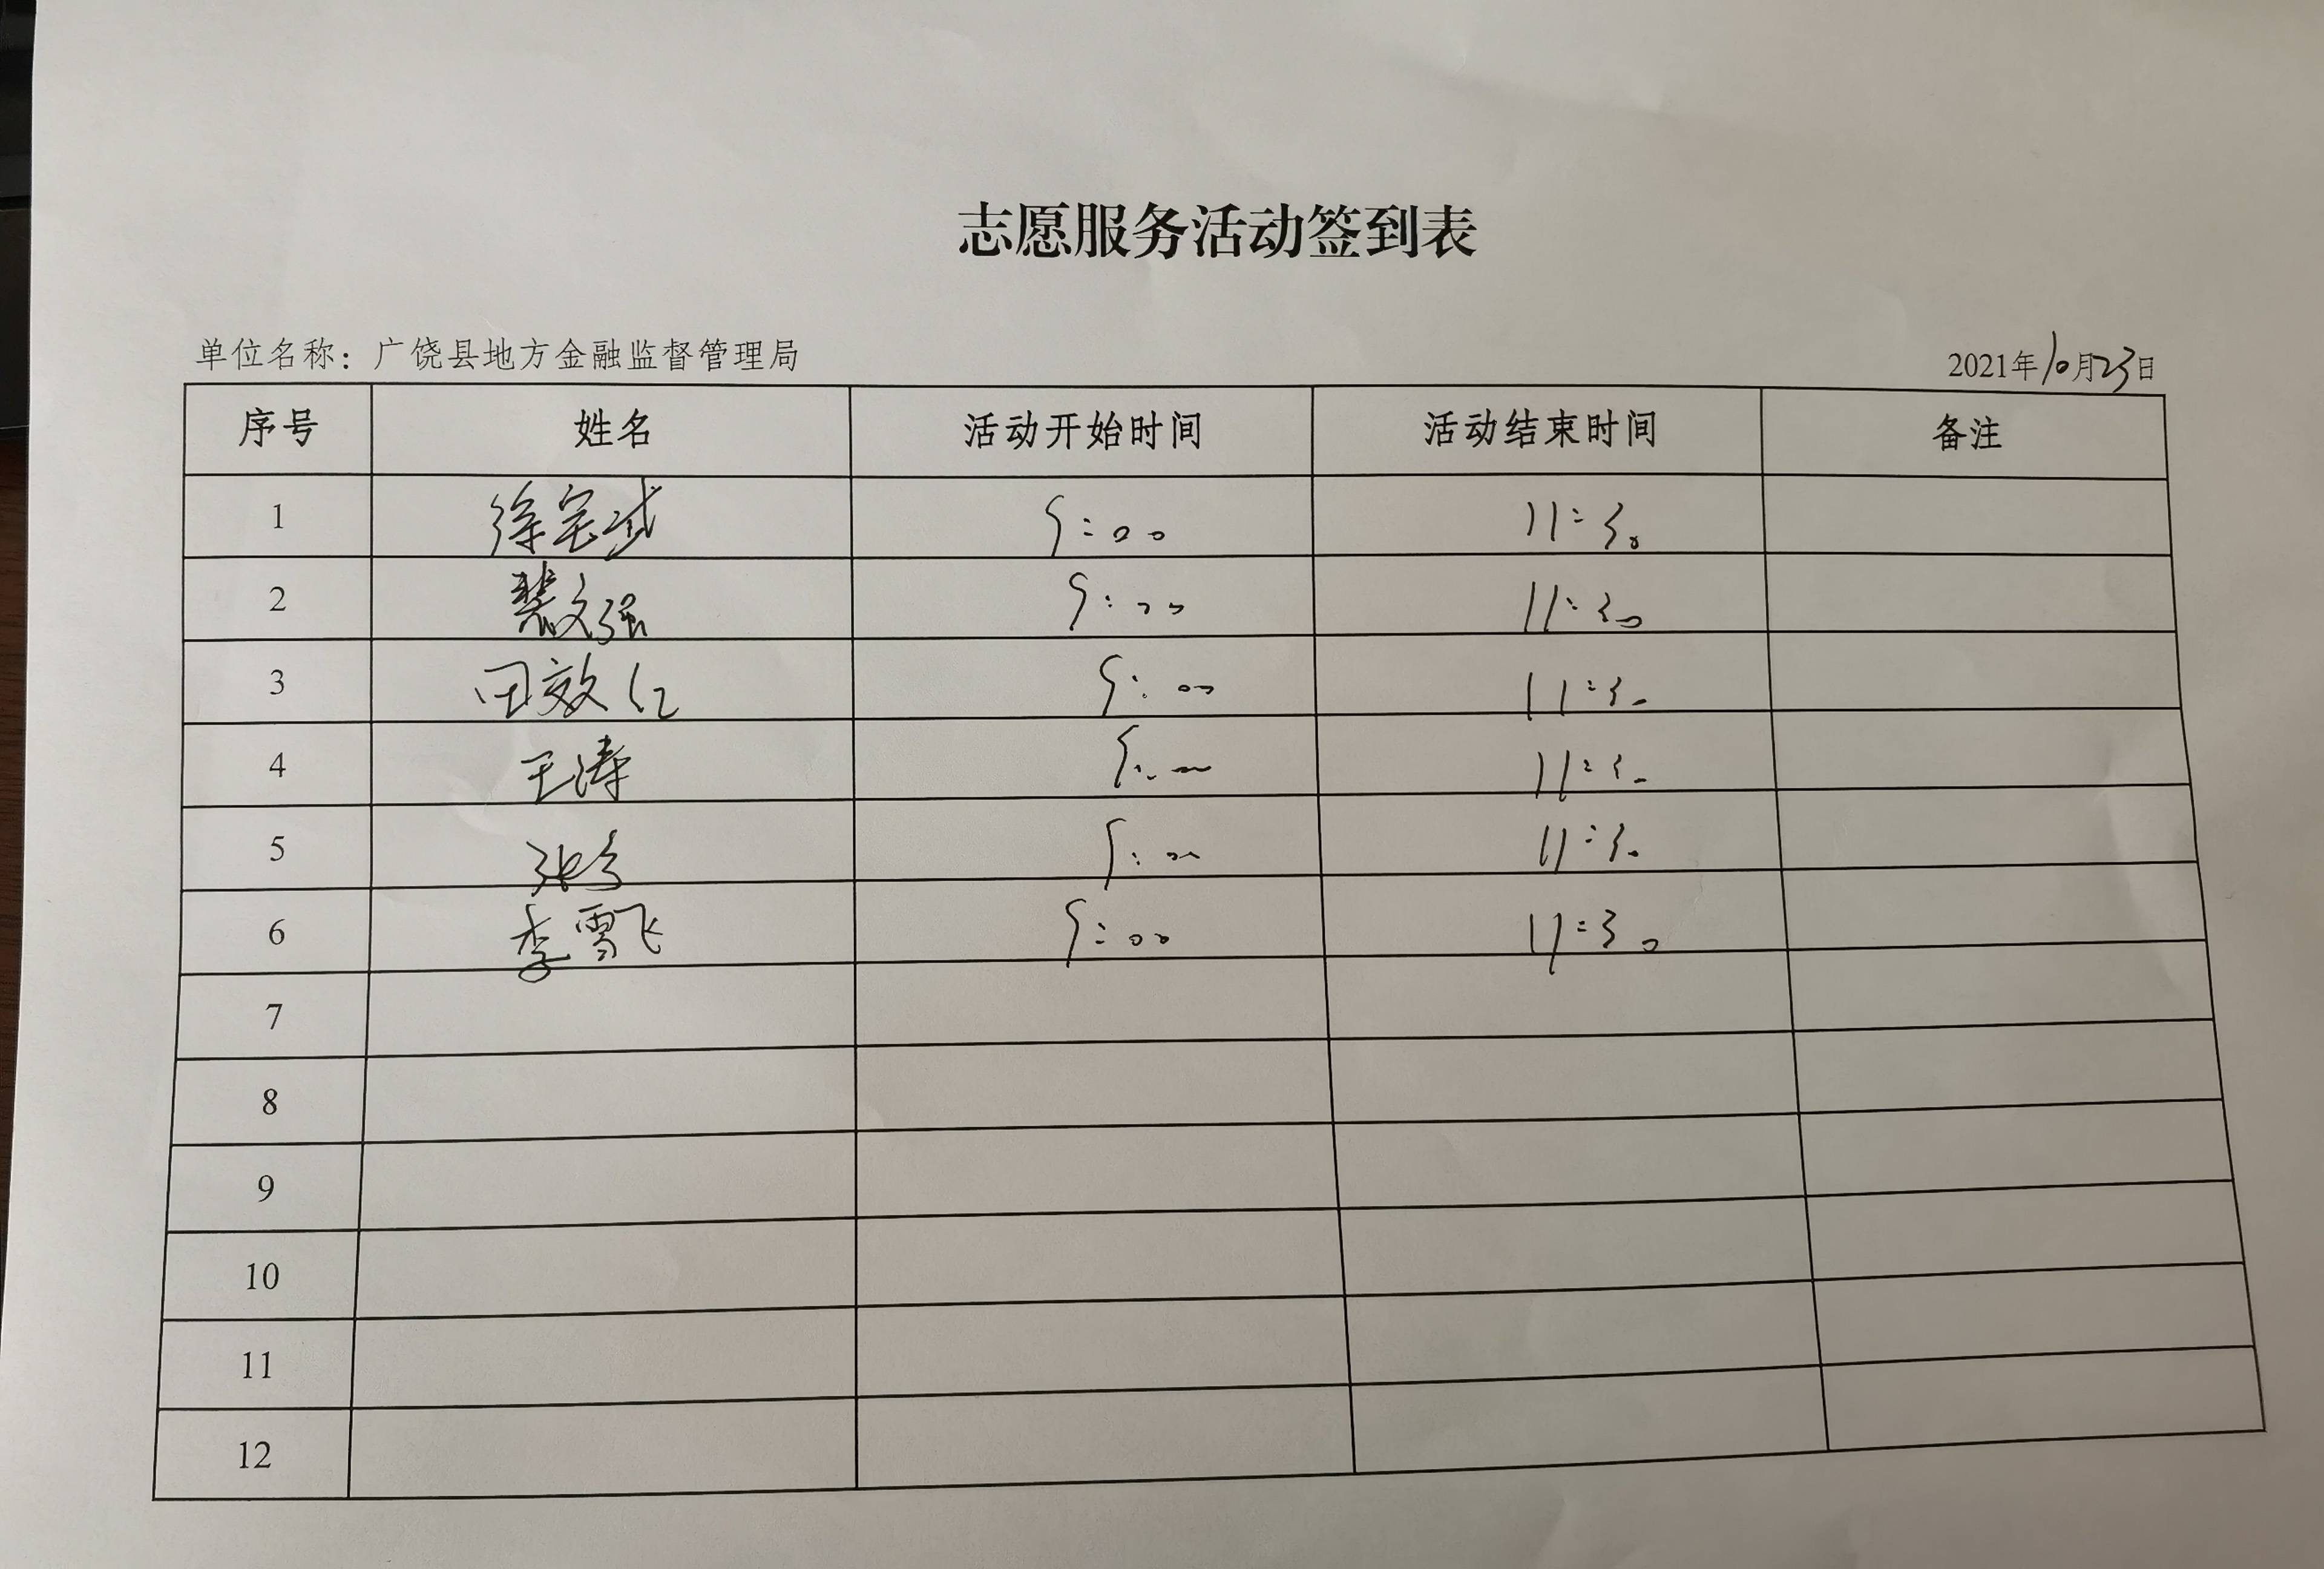 志愿服务活动签到表
单位名称：广饶县地方金融监督管理局 2021年10月23日
序号 姓名 活动开始时间 活动结束时间 备注
1 徐宝武 9:00 11:30
2 裴文强 9:00 11:30
3 田效仁 9:00 11:30
4 王涛 9:00 11:30
5 9:00 11:30
6 李雪飞 9:00 11:30
7
8
9
10
11
12